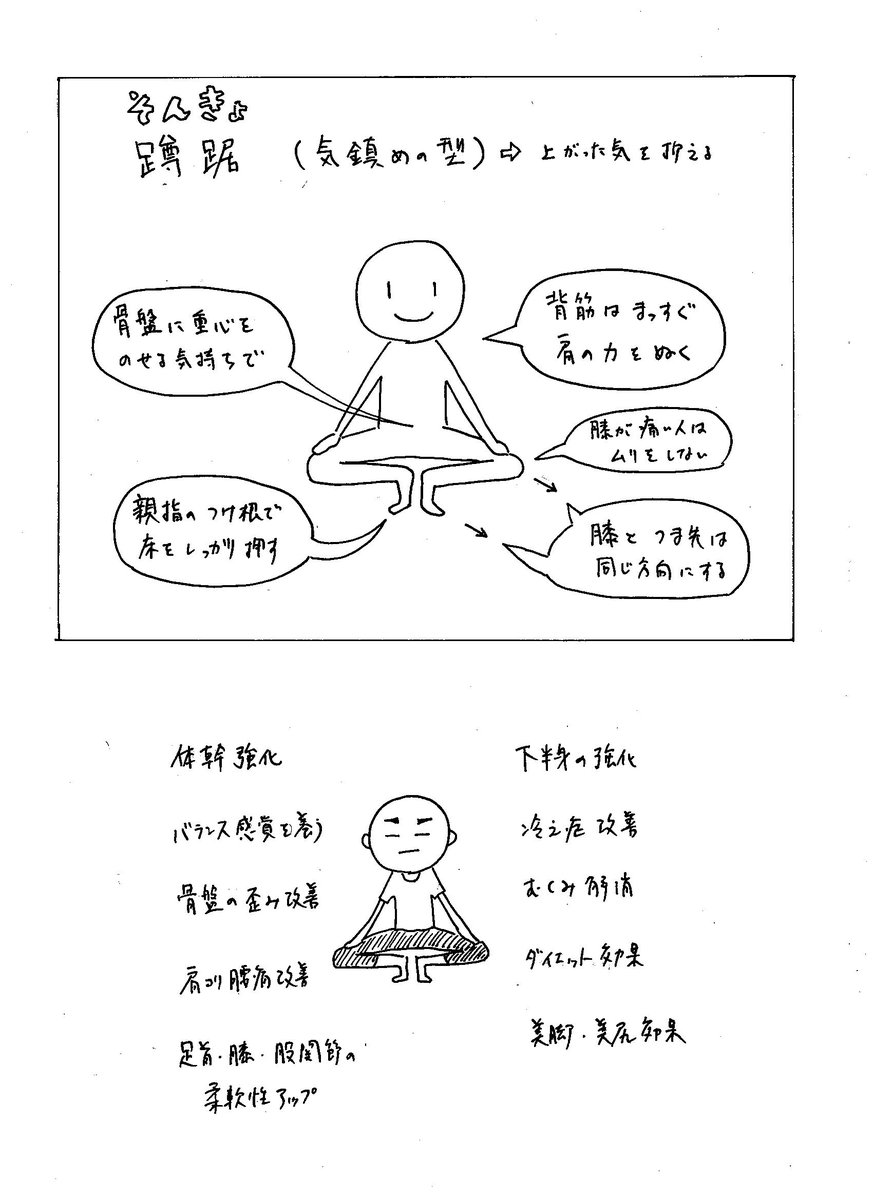 そんきょ
蹲踞 (気鎮めの型) ⇨ 上がった気を抑える
骨盤に重心を
のせる気持ちで
背筋はまっすぐ
肩の力をぬく
膝が痛い人は
ムリをしない
親指のつけ根で
床をしっかり押す
膝とつま先は
同じ方向にする
体幹強化
バランス感覚を養う
骨盤の歪み改善
肩コリ腰痛改善
足首・膝・股関節の
柔軟性アップ
下半身の強化
冷え症改善
むくみ解消
ダイエット効果
美脚・美尻効果